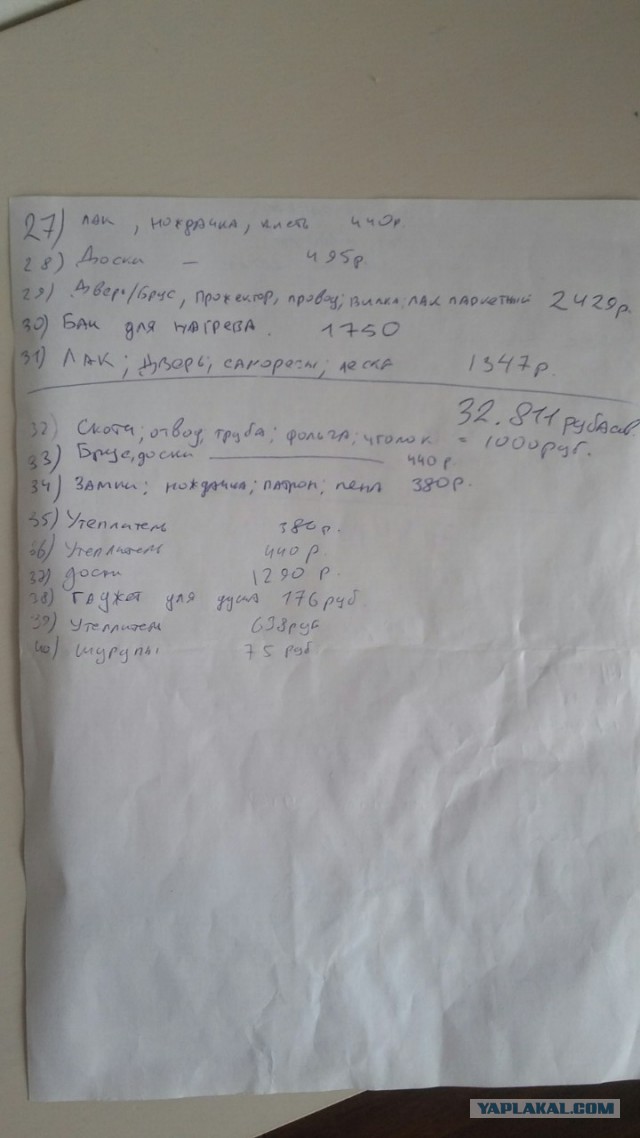 27) ЛАК, НОЖДАЧКА, кисть 440р.
28) Доски — 495р.
29) Дверь/Брус, Прожектор, провод; Вилка; ЛАК ПАРКЕТНЫЙ 2429р.
30) БАК для НАГРЕВА. 1750
31) ЛАК; ДВЕРЬ; САМОРЕЗЫ; леска 1347р.
32.811 рубасов
32) Скотч; отвод, труба; фольга; уголок = 1000руб.
33) Брус, доски 440р.
34) ЗАМКИ; НОЖДАЧКА; ПАТРОН; ПЕНА 380р.
35) Утеплитель 380р.
36) Утеплитель 440р.
37) доски 1290 р.
38) ГАДЖЕТ для душа 176руб.
39) Утеплитель 638руб
40) Шурупы 75 руб
YAPLAKAL.COM